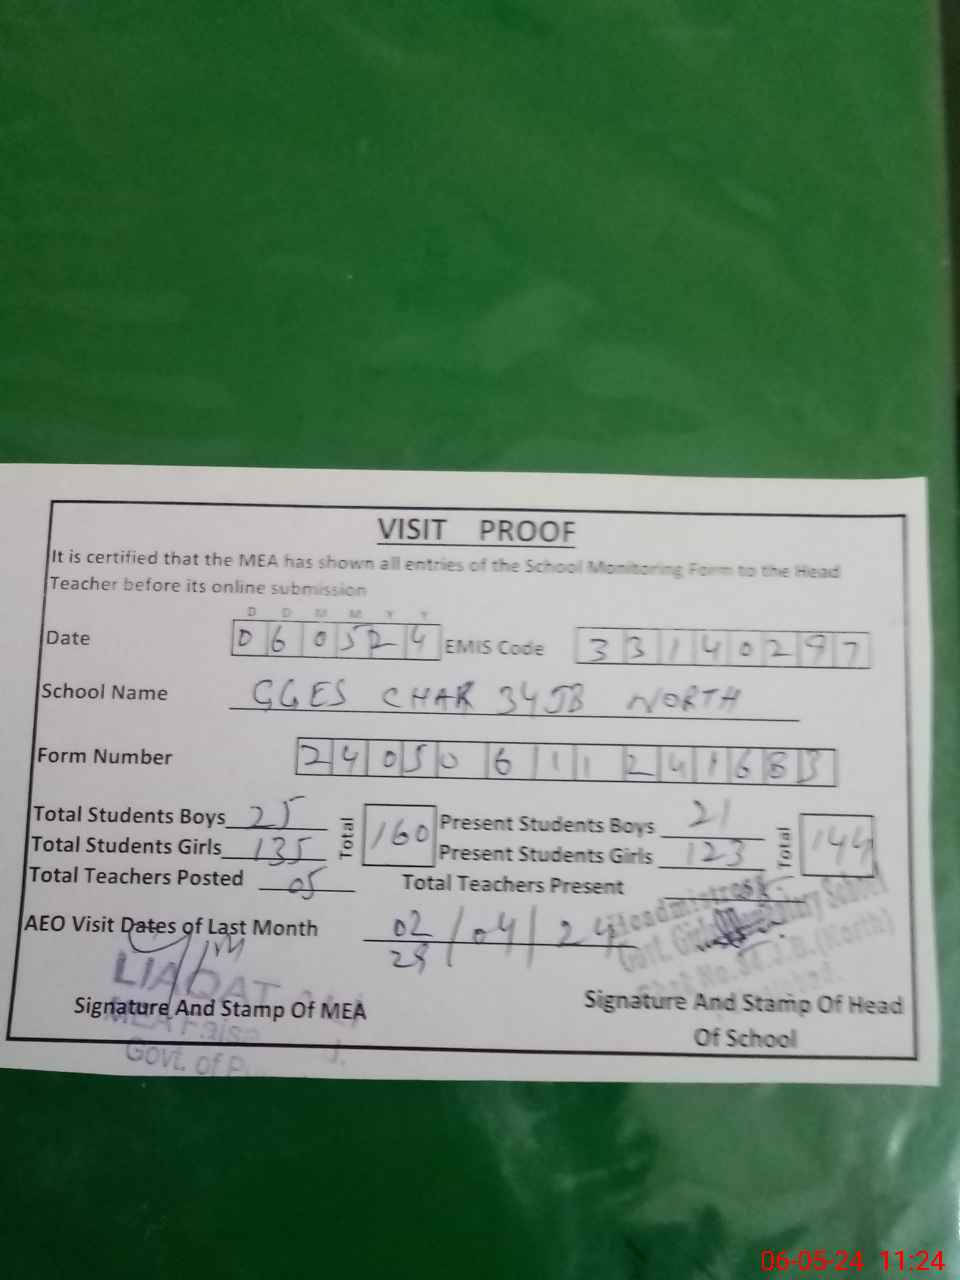 VISIT PROOF
It is certified that the MEA has shown all entries of the School Monitoring Form to the Head
Teacher before its online submission
D D M M Y Y
Date 0 6 0 5 2 4 EMIS Code 3 3 1 4 0 2 9 7
School Name GGES CHAK 34JB NORTH
Form Number 2 4 0 5 0 6 1 1 2 4 1 6 8 3
Total Students Boys 25 Total 160 Present Students Boys 21 Total 144
Total Students Girls 135 Present Students Girls 123
Total Teachers Posted 05 Total Teachers Present
AEO Visit Dates of Last Month 02/04/24
29
Headmistress
Govt. Girls Elementary School
Chak No.34.J.B.(North)
LIAQAT
Signature And Stamp Of MEA
Signature And Stamp Of Head
Of School
MEA Faisa
Govt. of
06-05-24 11:24